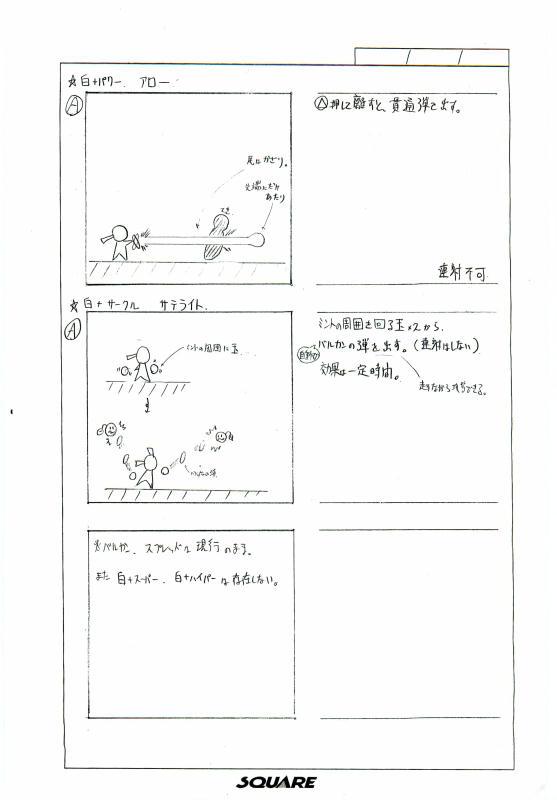 ☆白+パワー. アロー
Ⓐ
尾はかざり。
先端にだけ
あたり
てき
Ⓐ押して離すと、貫通弾を出す。
連射不可
☆白+サークル サテライト.
Ⓐ
ミントの周囲に玉
バルカンの弾
ミントの周囲を回る玉×2から.
バルカンの弾を出す。(連射はしない)
自動
効果は一定時間。
走りながら攻撃できる。
※バルカン. スプレッドは現行のまま.
また 白+スーパー. 白+ハイパーは存在しない。
SQUARE